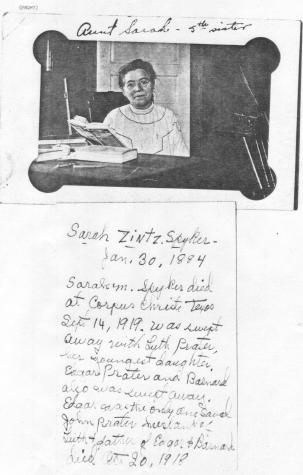 Aunt Sarah - 5th sister
Sarah Zintz. Spyker -
Jan. 30, 1884
Sarah M. Spyker died
at Corpus Christe Texas
Sept 14, 1919. was swept
away with Ruth Prater,
her youngest daughter.
Edgar Prater and Barnard
also was swept away.
Edgar was the only one saved
John Prater
Ruth + father of Edgar + Barnard
died Oct 20, 1918